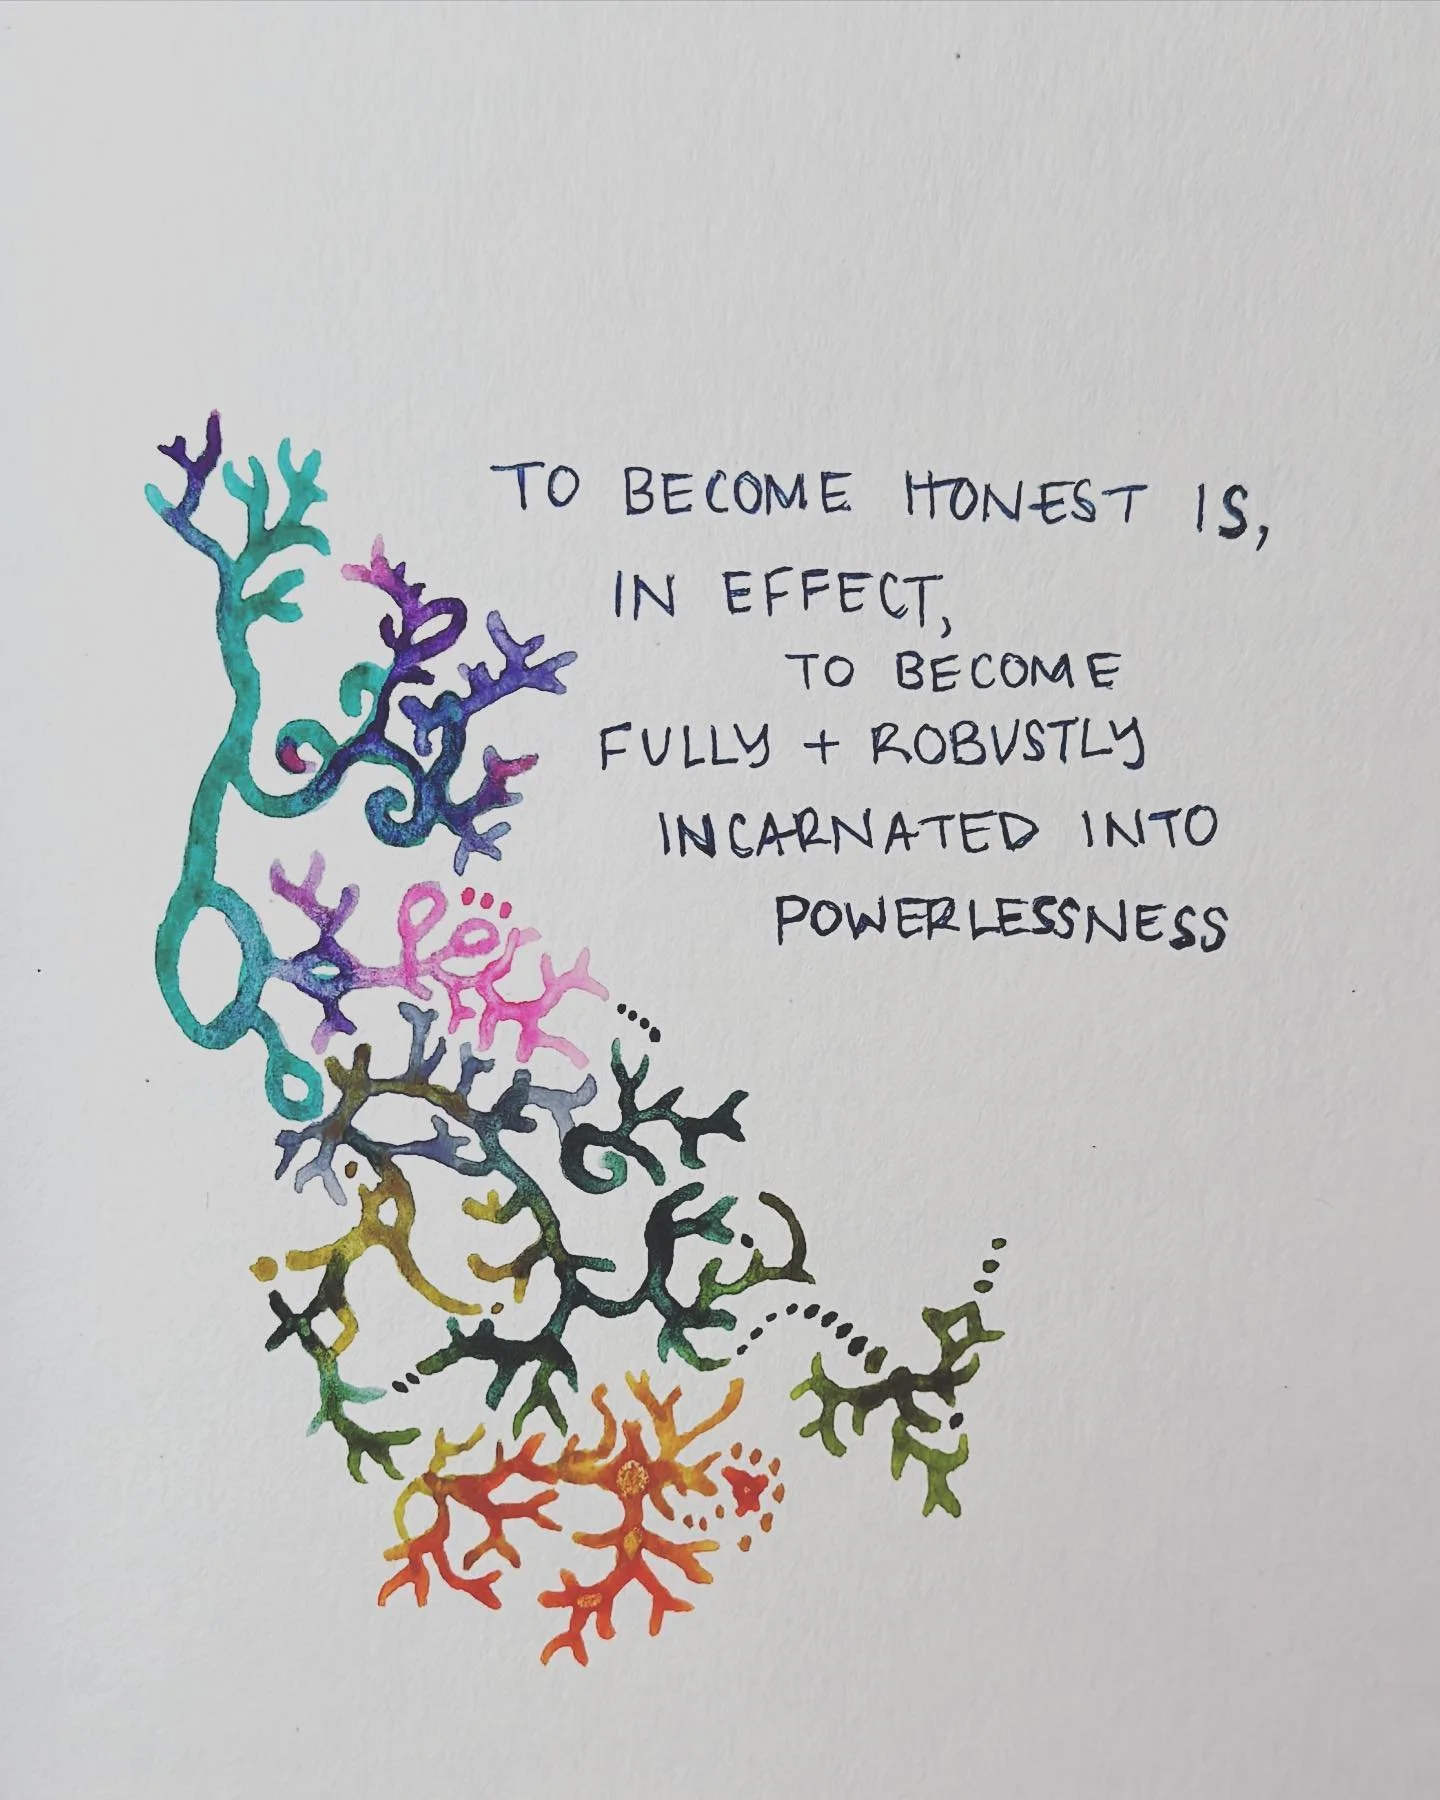 TO BECOME HONEST IS,
IN EFFECT,
TO BECOME
FULLY + ROBUSTLY
INCARNATED INTO
POWERLESSNESS